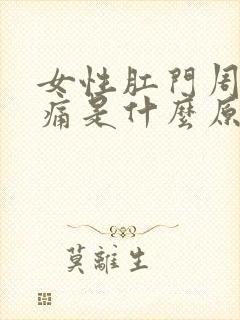 女性肛門周
痛是什麼原
莫離生